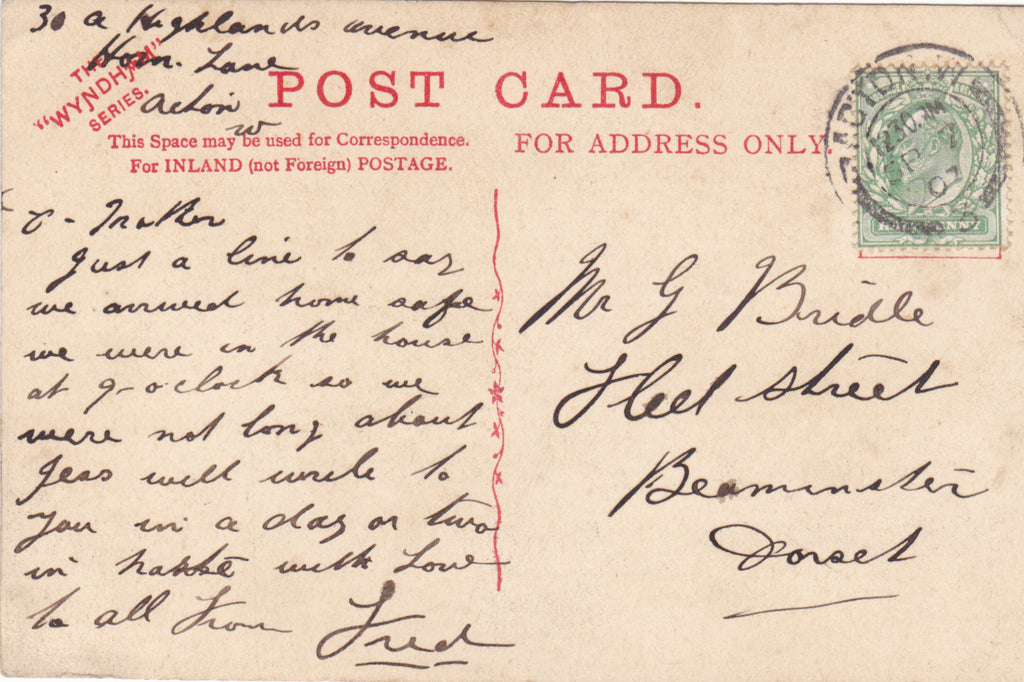 30 a Highlands avenue
Horn. Lane
Acton
W
THE
"WYNDHAM"
SERIES.
POST CARD.
This Space may be used for Correspondence.
For INLAND (not Foreign) POSTAGE.
FOR ADDRESS ONLY.
ACTON. W.
12.30. PM
07
Just a line to say
we arrived home safe
we were in the house
at 9-o clock so we
were not long about
Jess will write to
you in a day or two
in haste with Love
to all From
Fred
Mr G Bridle
Fleet street
Beaminster
Dorset